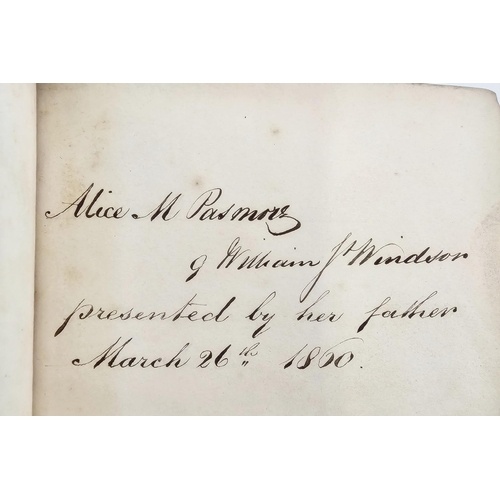 Alice M Pasmore
9 William St Windsor
presented by her father
March 26th 1860.